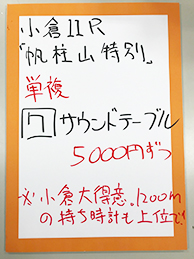 小倉11R
『帆柱山特別』
単複
7 サウンドテーブル
5000円ずつ
※小倉大得意。1200m
の持ち時計も上位で!